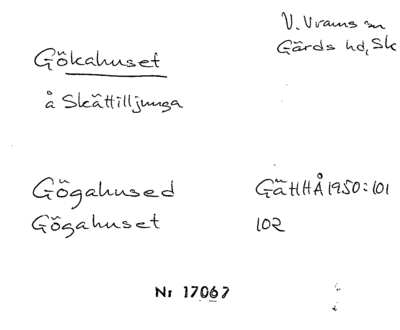 Gökahuset
V. Vrams sn
Gärds hd, Sk
å Skättilljunga
Gögahused GäHHÅ 1950:101
Gögahuset 102
Nr 17067